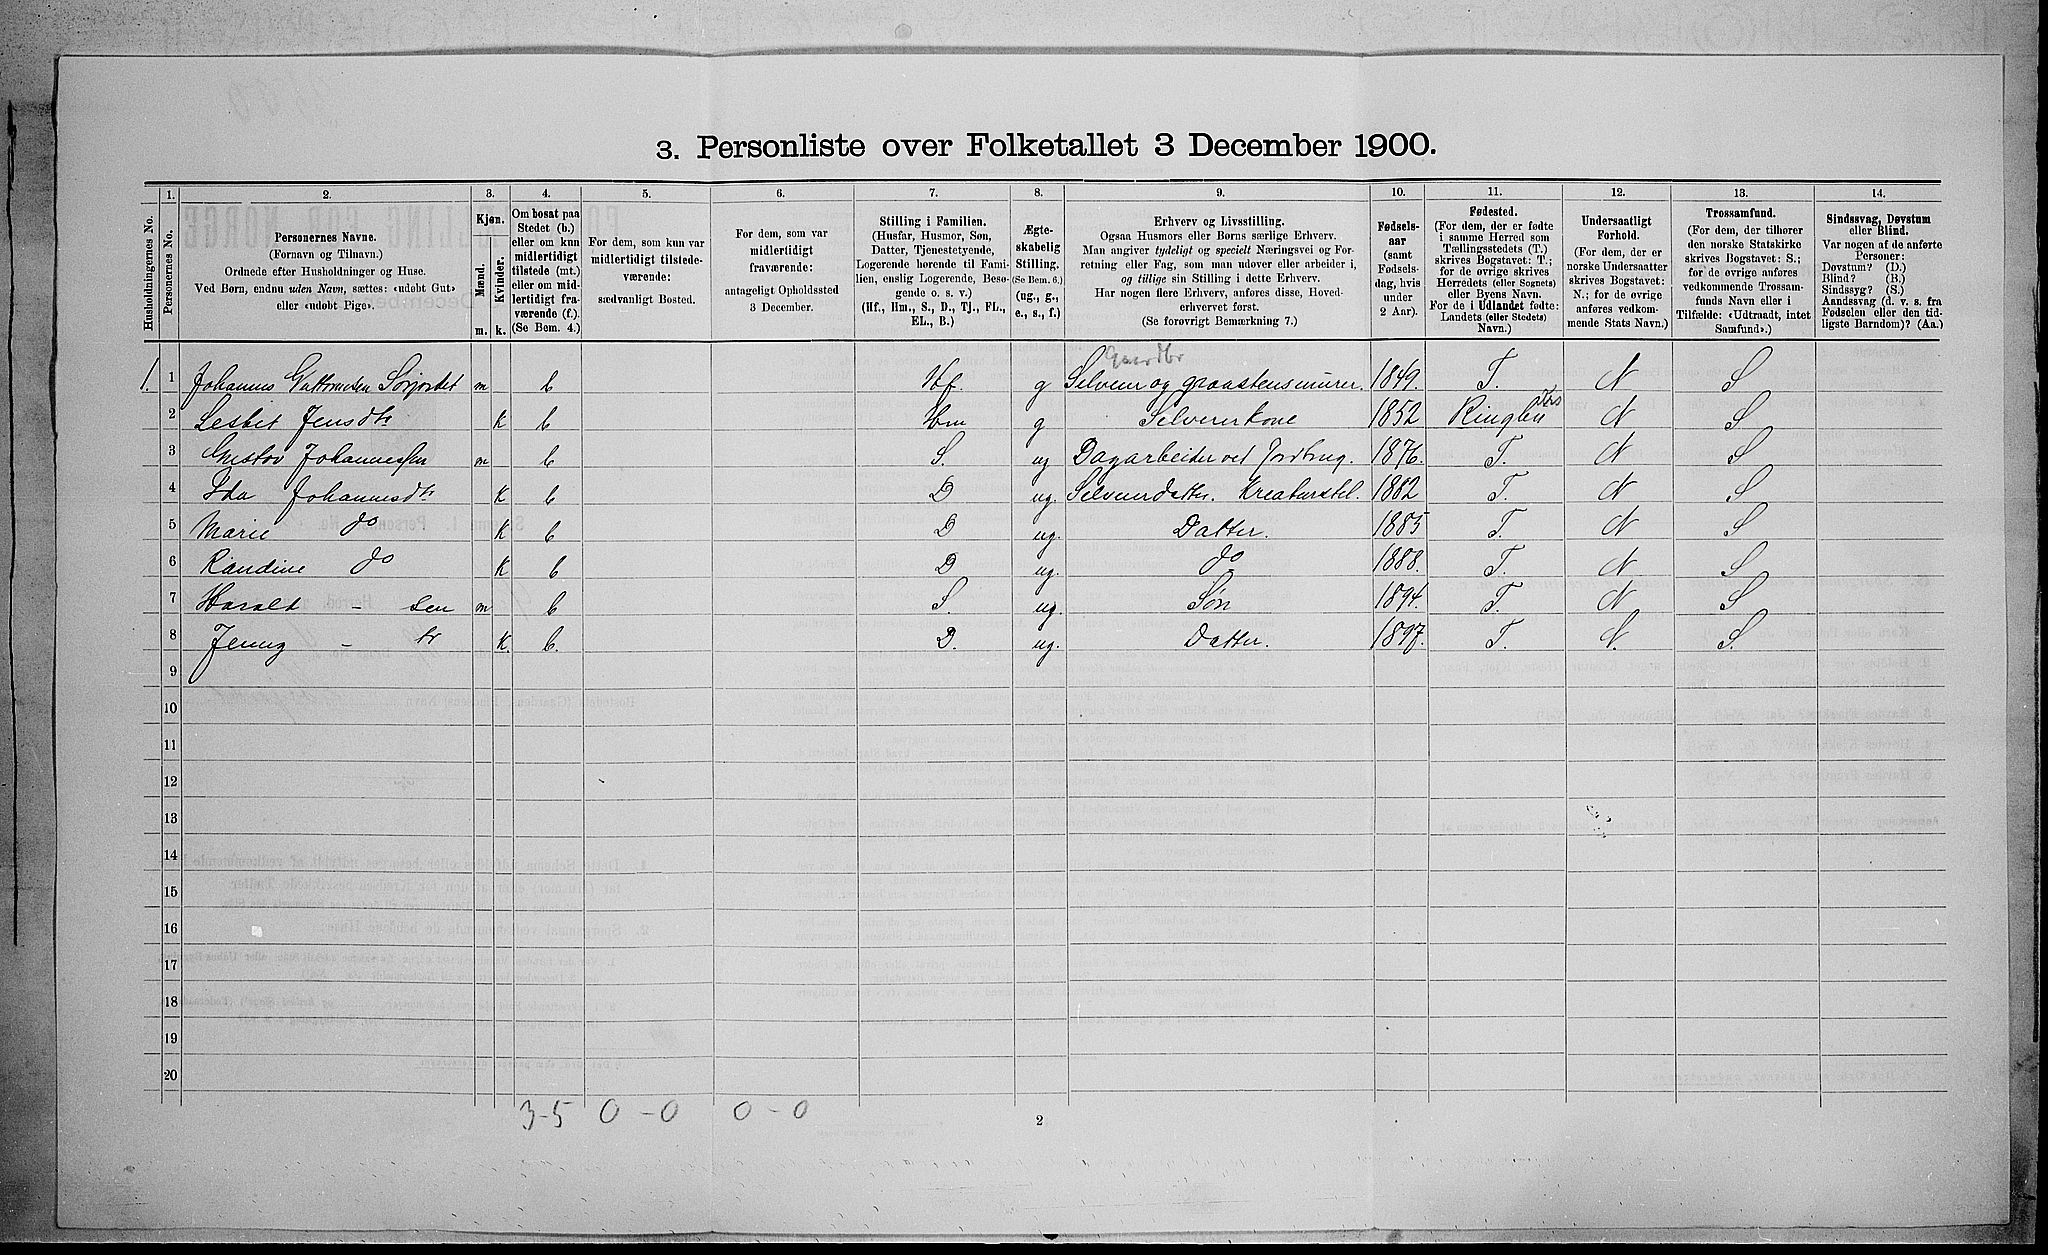 3. Personliste over Folketallet 3 December 1900.
Husholdningernes No.
1. Personernes No.
2. Personernes Navne.
(Fornavn og Tilnavn.)
Ordnede efter Husholdninger og Huse.
Ved Børn, endnu uden Navn, sættes: «udøbt Gut»
eller «udøbt Pige».
3. Kjøn.
Mænd. m.
Kvinder. k.
4. Om bosat paa
Stedet (b.)
eller om kun
midlertidigt
tilstede (mt.)
eller om mid-
lertidigt fra-
værende (f.)
(Se Bem. 4.)
5. For dem, som kun var
midlertidigt tilstede-
værende:
sædvanligt Bosted.
6. For dem, som var
midlertidigt
fraværende:
antageligt Opholdssted
3 December.
7. Stilling i Familien.
(Husfar, Husmor, Søn,
Datter, Tjenestetyende,
Logerende hørende til Fami-
lien, enslig Logerende, Besø-
gende o. s. v.)
(Hf., Hm., S., D., Tj., FL.,
EL., B.)
8. Ægte-
skabelig
Stilling.
(Se Bem. 6.)
(ug., g.,
e., s., f.)
9. Erhverv og Livsstilling.
Ogsaa Husmors eller Børns særlige Erhverv.
Man angiver tydeligt og specielt Næringsvei og For-
retning eller Fag, som man udøver eller arbeider i,
og tillige sin Stilling i dette Erhverv.
Har nogen flere Erhverv, anføres disse, Hoved-
erhvervet først.
(Se forøvrigt Bemærkning 7.)
10. Fødsels-
aar
(samt
Fødsels-
dag, hvis
under
2 Aar).
11. Fødested.
(For dem, der er fødte
i samme Herred som
Tællingsstedets (T.)
skrives Bogstavet: T.;
for de øvrige skrives
Herredets (eller Sognets)
eller Byens Navn.
For de i Udlandet fødte:
Landets (eller Stedets)
Navn.)
12. Undersaatligt
Forhold.
(For dem, der er
norske Undersaatter
skrives Bogstavet:
N.; for de øvrige
anføres vedkom-
mende Stats Navn.)
13. Trossamfund.
(For dem, der tilhører
den norske Statskirke
skrives Bogstavet: S.;
for de øvrige anføres
vedkommende Trossam-
funds Navn eller i
Tilfælde: «Udtraadt, intet
Samfund».)
14. Sindssvag, Døvstum
eller Blind.
Var nogen af de anførte
Personer:
Døvstum? (D.)
Blind? (B.)
Sindssyg? (S.)
Aandssvag (d. v. s. fra
Fødselen eller den tid-
ligste Barndom)? (Aa.)
Gaardbr
1. 1 Johannes Guttormsen Sørjordet m b Hf. g Selveier og graastensmurer. 1849. T. N S
2 Lesbet Jensdtr K b Hm g Selveierkone 1852 Ringebu N S
3 Gustav Johannessen m b S. ug Dagarbeider ved Jordbrug. 1876. T. N S
4 Ida Johannesdtr K b D ug. Selveierdatter. Kreaturstel. 1882 T. N S
5 Marie do K b D ug. Datter. 1885 T. N S
6 Randine do K b D ug. do 1888. T. N S
7 Harald - sen m b S. ug. Søn 1894. T. N S
8 Jenny - tr K. b. D. ug. Datter. 1897. T N. S.
9
10
11
12
13
14
15
16
17
18
19
20
3-5 0-0 0-0
2